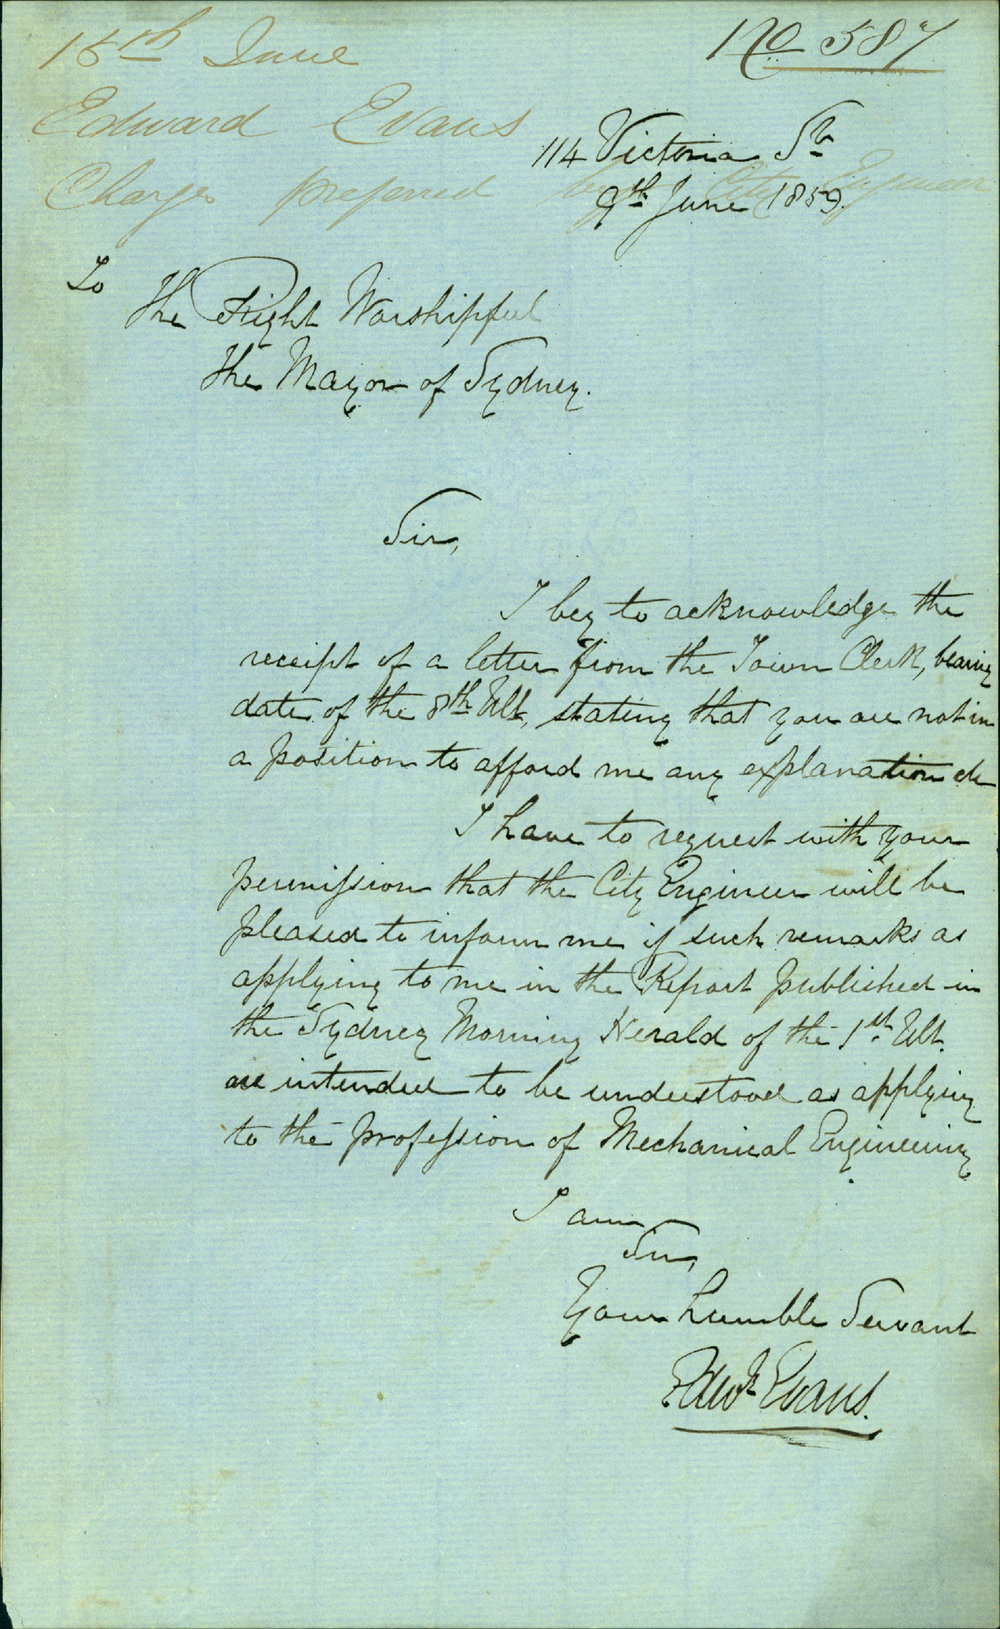 15th June
No 587
Edward Evans
Charges preferred by City Engineer
114 Victoria St
9th June 1859.
To
The Right Worshipful
The Mayor of Sydney.
Sir,
I beg to acknowledge the
receipt of a letter from the Town Clerk, bearing
date of the 8th Ult, stating that you are not in
a position to afford me any explanation &c
I have to request with your
permission that the City Engineer will be
pleased to inform me if such remarks as
applying to me in the Report published in
the Sydney Morning Herald of the 1st Ult.
are intended to be understood as applying
to the profession of Mechanical Engineering
I am
Sir,
Your humble Servant
Edwd Evans.